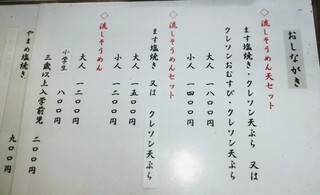 おしながき
◇流しそうめん天セット
ます塩焼き・クレソン天ぷら 又は
クレソンおむすび・クレソン天ぷら
大人 一八〇〇円
小人 一四〇〇円
◇流しそうめんセット
ます塩焼き 又は クレソン天ぷら
大人 一五〇〇円
小人 一一〇〇円
◇流しそうめん
大人 一二〇〇円
小学生 八〇〇円
三歳以上入学前児 二〇〇円
やまめ塩焼き 九〇〇円